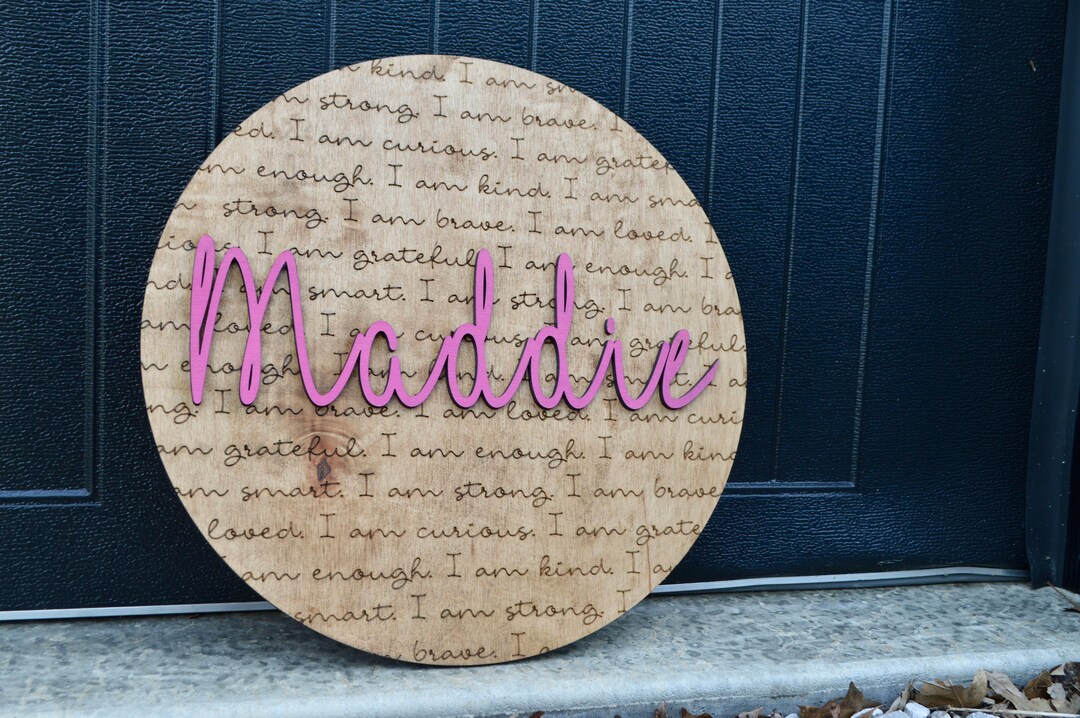 kind. I am
strong. I am brave. I
I am curious. I am
am enough. I am kind. I am
strong. I am brave. I am loved. I
I am grateful. I am enough. I
am smart. I am strong. I am
am loved. I am curious. I am grateful.
enough. I am kind. I am smart. I
Maddie
I am brave. I am loved. I am
am grateful. I am enough. I am kind
am smart. I am strong. I am brave
loved. I am curious. I am
am enough. I am kind. I
smart. I am strong. I
brave. I